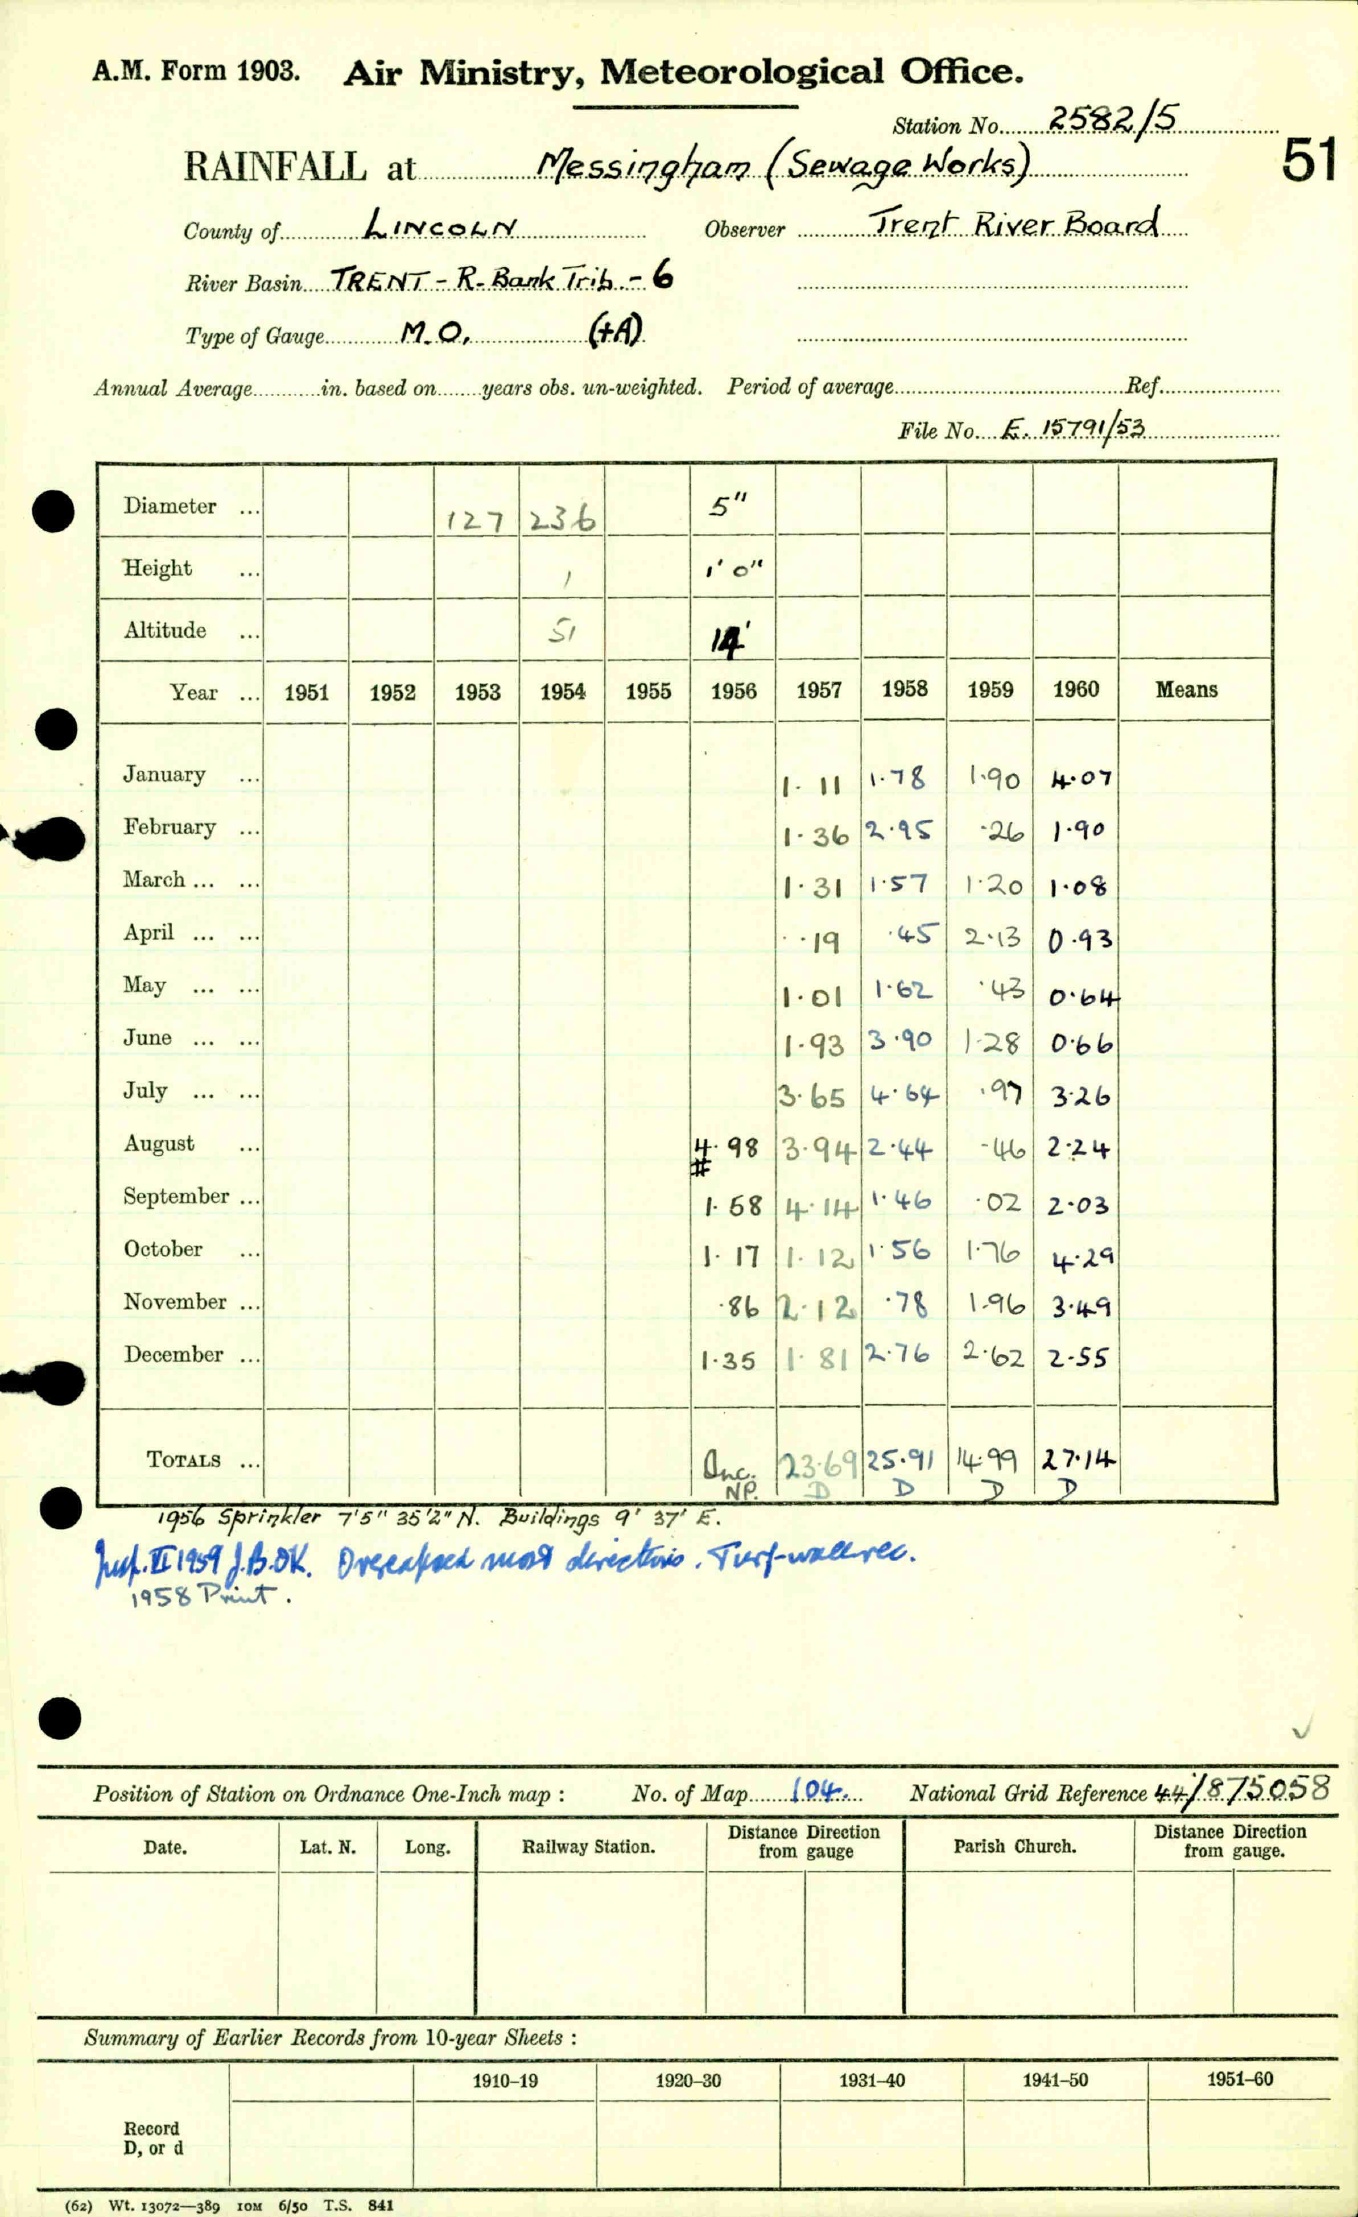 A.M. Form 1903. Air Ministry, Meteorological Office.
Station No. 2582/5
RAINFALL at Messingham (Sewage Works) 51
County of LINCOLN Observer Trent River Board
River Basin TRENT - R. Bank Trib. - 6
Type of Gauge M.O. (+A)
Annual Average in. based on years obs. un-weighted. Period of average Ref.
File No. E. 15791/53
Diameter ... 127 236 5"
Height ... 1 1' 0"
Altitude ... 51 14'
Year ... 1951 1952 1953 1954 1955 1956 1957 1958 1959 1960 Means
January ... 1.11 1.78 1.90 4.07
February ... 1.36 2.95 .26 1.90
March ... ... 1.31 1.57 1.20 1.08
April ... ... .19 .45 2.13 0.93
May ... ... 1.01 1.62 .43 0.64
June ... ... 1.93 3.90 1.28 0.66
July ... ... 3.65 4.64 .97 3.26
August ... 4.98 3.94 2.44 .46 2.24
#
September ... 1.68 4.14 1.46 .02 2.03
October ... 1.17 1.12 1.56 1.76 4.29
November ... .86 2.12 .78 1.96 3.49
December ... 1.35 1.81 2.76 2.62 2.55
TOTALS ... Inc. 23.69 25.91 14.99 27.14
NP. D D D D
1956 Sprinkler 7'5" 35'2" N. Buildings 9' 37' E.
Insp. VI 1959 J.B. OK. Overexposed most directions. Turf-wall rec.
1958 Print.
Position of Station on Ordnance One-Inch map : No. of Map 104. National Grid Reference 44/875058
Date. Lat. N. Long. Railway Station. Distance Direction from gauge Parish Church. Distance Direction from gauge.
Summary of Earlier Records from 10-year Sheets :
1910–19 1920–30 1931–40 1941–50 1951–60
Record
D, or d
(62) Wt. 13072—389 10M 6/50 T.S. 841